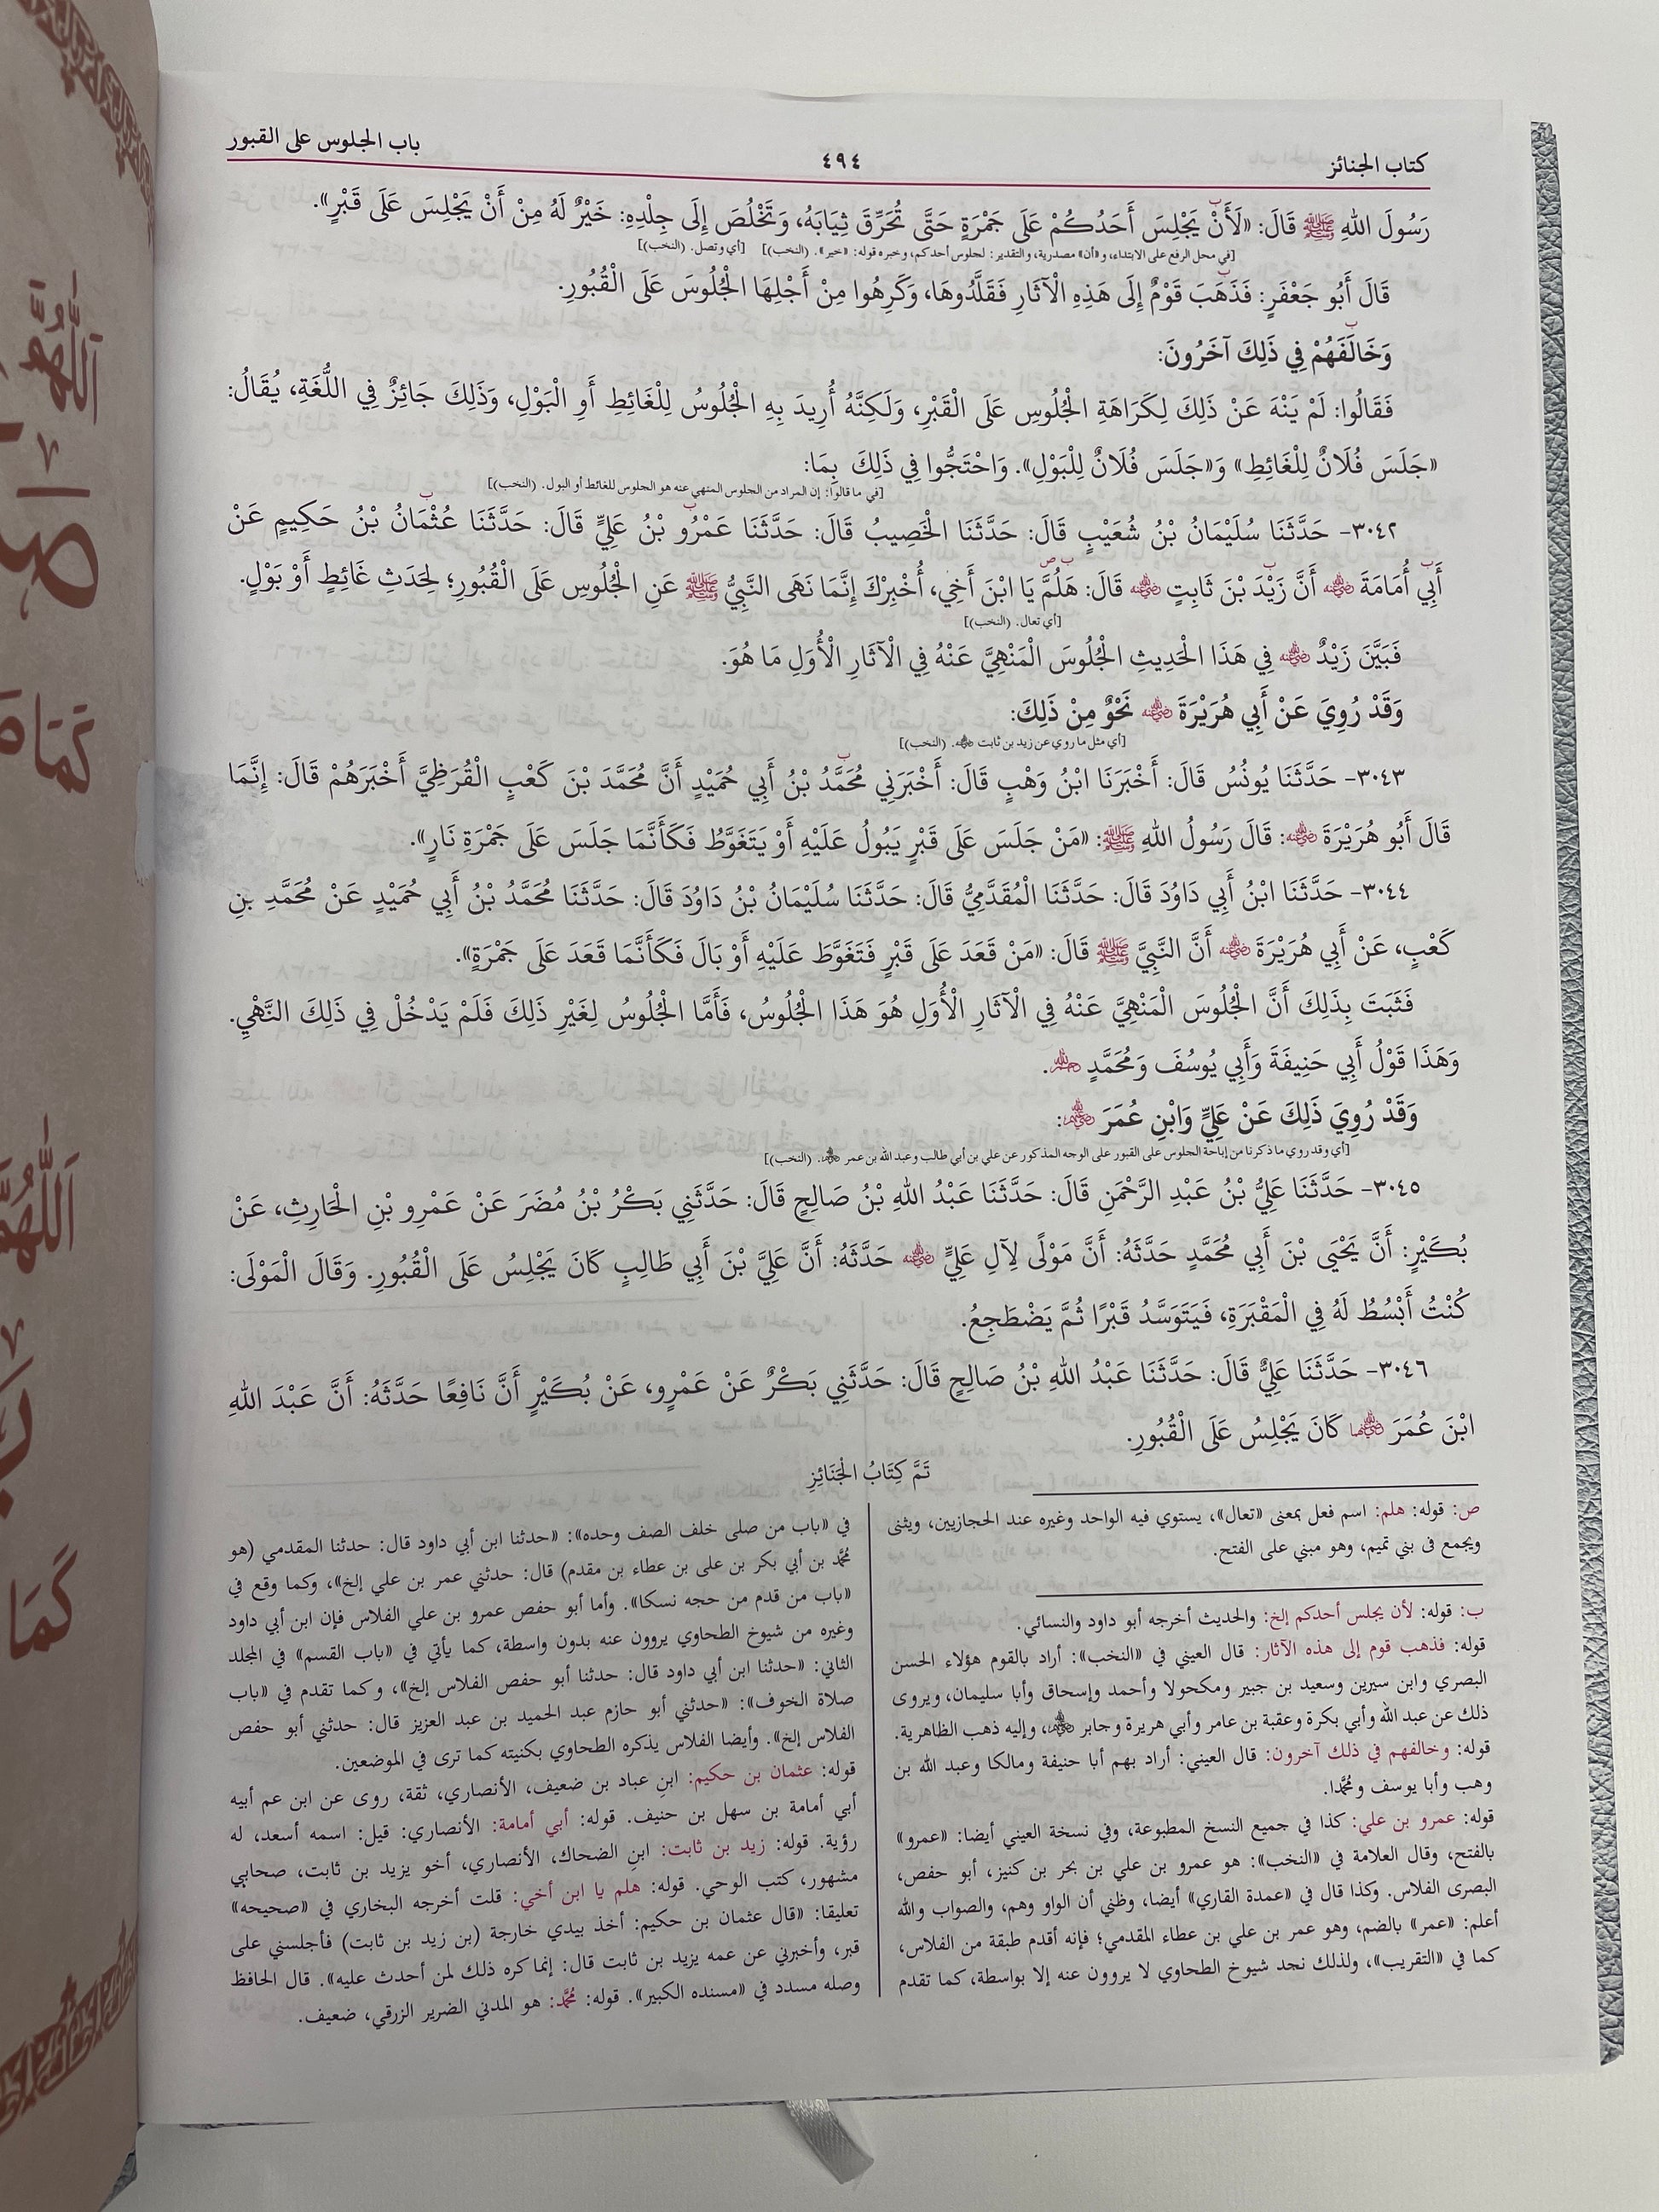 كتاب الجنائز
٤٩٤
باب الجلوس على القبور
رَسُولَ اللهِ ﷺ قَالَ: «لَأَنْ يَجْلِسَ أَحَدُكُمْ عَلَى جَمْرَةٍ حَتَّى تُحَرِّقَ ثِيَابَهُ، وَتَخْلُصَ إِلَى جِلْدِهِ: خَيْرٌ لَهُ مِنْ أَنْ يَجْلِسَ عَلَى قَبْرٍ».
[في محل الرفع على الابتداء، و«أن» مصدرية، والتقدير: لجلوس أحدكم، وخبره قوله: «خير». (النخب)] [أي وتصل. (النخب)]
قَالَ أَبُو جَعْفَرٍ: فَذَهَبَ قَوْمٌ إِلَى هَذِهِ الْآثَارِ فَقَلَّدُوهَا، وَكَرِهُوا مِنْ أَجْلِهَا الْجُلُوسَ عَلَى الْقُبُورِ.
وَخَالَفَهُمْ فِي ذَلِكَ آخَرُونَ:
فَقَالُوا: لَمْ يَنْهَ عَنْ ذَلِكَ لِكَرَاهَةِ الْجُلُوسِ عَلَى الْقَبْرِ، وَلَكِنَّهُ أُرِيدَ بِهِ الْجُلُوسُ لِلْغَائِطِ أَوِ الْبَوْلِ، وَذَلِكَ جَائِزٌ فِي اللُّغَةِ، يُقَالُ:
«جَلَسَ فُلَانٌ لِلْغَائِطِ» وَ«جَلَسَ فُلَانٌ لِلْبَوْلِ». وَاحْتَجُّوا فِي ذَلِكَ بِمَا:
[في ما قالوا: إن المراد من الجلوس المنهي عنه هو الجلوس للغائط أو البول. (النخب)]
٣٠٤٢- حَدَّثَنَا سُلَيْمَانُ بْنُ شُعَيْبٍ قَالَ: حَدَّثَنَا الْخَصِيبُ قَالَ: حَدَّثَنَا عَمْرُو بْنُ عَلِيٍّ قَالَ: حَدَّثَنَا عُثْمَانُ بْنُ حَكِيمٍ عَنْ
أَبِي أُمَامَةَ ﷺ أَنَّ زَيْدَ بْنَ ثَابِتٍ رضي الله عنه قَالَ: هَلُمَّ يَا ابْنَ أَخِي، أُخْبِرْكَ إِنَّمَا نَهَى النَّبِيُّ ﷺ عَنِ الْجُلُوسِ عَلَى الْقُبُورِ؛ لِحَدَثِ غَائِطٍ أَوْ بَوْلٍ.
[أي تعال. (النخب)]
فَبَيَّنَ زَيْدٌ رضي الله عنه فِي هَذَا الْحَدِيثِ الْجُلُوسَ الْمَنْهِيَّ عَنْهُ فِي الْآثَارِ الْأُوَلِ مَا هُوَ.
وَقَدْ رُوِيَ عَنْ أَبِي هُرَيْرَةَ رضي الله عنه نَحْوٌ مِنْ ذَلِكَ:
[أي مثل ما روي عن زيد بن ثابت رضي الله عنه. (النخب)]
٣٠٤٣- حَدَّثَنَا يُونُسُ قَالَ: أَخْبَرَنَا ابْنُ وَهْبٍ قَالَ: أَخْبَرَنِي مُحَمَّدُ بْنُ أَبِي حُمَيْدٍ أَنَّ مُحَمَّدَ بْنَ كَعْبٍ الْقُرَظِيَّ أَخْبَرَهُمْ قَالَ: إِنَّمَا
قَالَ أَبُو هُرَيْرَةَ رضي الله عنه: قَالَ رَسُولُ اللهِ ﷺ: «مَنْ جَلَسَ عَلَى قَبْرٍ يَبُولُ عَلَيْهِ أَوْ يَتَغَوَّطُ فَكَأَنَّمَا جَلَسَ عَلَى جَمْرَةِ نَارٍ».
٣٠٤٤- حَدَّثَنَا ابْنُ أَبِي دَاوُدَ قَالَ: حَدَّثَنَا الْمُقَدَّمِيُّ قَالَ: حَدَّثَنَا سُلَيْمَانُ بْنُ دَاوُدَ قَالَ: حَدَّثَنَا مُحَمَّدُ بْنُ أَبِي حُمَيْدٍ عَنْ مُحَمَّدِ بنِ
كَعْبٍ، عَنْ أَبِي هُرَيْرَةَ رضي الله عنه أَنَّ النَّبِيَّ ﷺ قَالَ: «مَنْ قَعَدَ عَلَى قَبْرٍ فَتَغَوَّطَ عَلَيْهِ أَوْ بَالَ فَكَأَنَّمَا قَعَدَ عَلَى جَمْرَةٍ».
فَثَبَتَ بِذَلِكَ أَنَّ الْجُلُوسَ الْمَنْهِيَّ عَنْهُ فِي الْآثَارِ الْأُوَلِ هُوَ هَذَا الْجُلُوسُ، فَأَمَّا الْجُلُوسُ لِغَيْرِ ذَلِكَ فَلَمْ يَدْخُلْ فِي ذَلِكَ النَّهْيِ.
وَهَذَا قَوْلُ أَبِي حَنِيفَةَ وَأَبِي يُوسُفَ وَمُحَمَّدٍ رحمهم الله.
وَقَدْ رُوِيَ ذَلِكَ عَنْ عَلِيٍّ وَابْنِ عُمَرَ رضي الله عنهم:
[أي وقد روي ما ذكرنا من إباحة الجلوس على القبور على الوجه المذكور عن علي بن أبي طالب وعبد الله بن عمر رضي الله عنهم. (النخب)]
٣٠٤٥- حَدَّثَنَا عَلِيُّ بْنُ عَبْدِ الرَّحْمَنِ قَالَ: حَدَّثَنَا عَبْدُ اللهِ بْنُ صَالِحٍ قَالَ: حَدَّثَنِي بَكْرُ بْنُ مُضَرَ عَنْ عَمْرِو بْنِ الْحَارِثِ، عَنْ
بُكَيْرٍ: أَنَّ يَحْيَى بْنَ أَبِي مُحَمَّدٍ حَدَّثَهُ: أَنَّ مَوْلًى لِآلِ عَلِيٍّ رضي الله عنه حَدَّثَهُ: أَنَّ عَلِيَّ بْنَ أَبِي طَالِبٍ كَانَ يَجْلِسُ عَلَى الْقُبُورِ. وَقَالَ الْمَوْلَى:
كُنْتُ أَبْسُطُ لَهُ فِي الْمَقْبَرَةِ، فَيَتَوَسَّدُ قَبْرًا ثُمَّ يَضْطَجِعُ.
٣٠٤٦- حَدَّثَنَا عَلِيٌّ قَالَ: حَدَّثَنَا عَبْدُ اللهِ بْنُ صَالِحٍ قَالَ: حَدَّثَنِي بَكْرٌ عَنْ عَمْرٍو، عَنْ بُكَيْرٍ أَنَّ نَافِعًا حَدَّثَهُ: أَنَّ عَبْدَ اللهِ
ابْنَ عُمَرَ رضي الله عنهما كَانَ يَجْلِسُ عَلَى الْقُبُورِ.
تَمَّ كِتَابُ الْجَنَائِزِ
ص: قوله: هلم: اسم فعل بمعنى «تعال»، يستوي فيه الواحد وغيره عند الحجازيين، ويثنى
ويجمع في بني تميم، وهو مبني على الفتح.
ب: قوله: لأن يجلس أحدكم إلخ: والحديث أخرجه أبو داود والنسائي.
قوله: فذهب قوم إلى هذه الآثار: قال العيني في «النخب»: أراد بالقوم هؤلاء الحسن
البصري وابن سيرين وسعيد بن جبير ومكحولا وأحمد وإسحاق وأبا سليمان، ويروى
ذلك عن عبد الله وأبي بكرة وعقبة بن عامر وأبي هريرة وجابر رضي الله عنهم، وإليه ذهب الظاهرية.
قوله: وخالفهم في ذلك آخرون: قال العيني: أراد بهم أبا حنيفة ومالكا وعبد الله بن
وهب وأبا يوسف ومحمدا.
قوله: عمرو بن علي: كذا في جميع النسخ المطبوعة، وفي نسخة العيني أيضا: «عمرو»
بالفتح، وقال العلامة في «النخب»: هو عمرو بن علي بن بحر بن كنيز، أبو حفص،
البصري الفلاس. وكذا قال في «عمدة القاري» أيضا، وظني أن الواو وهم، والصواب والله
أعلم: «عمر» بالضم، وهو عمر بن علي بن عطاء المقدمي؛ فإنه أقدم طبقة من الفلاس،
كما في «التقريب»، ولذلك نجد شيوخ الطحاوي لا يروون عنه إلا بواسطة، كما تقدم
في «باب من صلى خلف الصف وحده»: «حدثنا ابن أبي داود قال: حدثنا المقدمي (هو
محمد بن أبي بكر بن على بن عطاء بن مقدم) قال: حدثني عمر بن علي إلخ»، وكما وقع في
«باب من قدم من حجه نسكا». وأما أبو حفص عمرو بن علي الفلاس فإن ابن أبي داود
وغيره من شيوخ الطحاوي يروون عنه بدون واسطة، كما يأتي في «باب القسم» في المجلد
الثاني: «حدثنا ابن أبي داود قال: حدثنا أبو حفص الفلاس إلخ»، وكما تقدم في «باب
صلاة الخوف»: «حدثني أبو حازم عبد الحميد بن عبد العزيز قال: حدثني أبو حفص
الفلاس إلخ». وأيضا الفلاس يذكره الطحاوي بكنيته كما ترى في الموضعين.
قوله: عثمان بن حكيم: ابن عباد بن ضعيف، الأنصاري، ثقة، روى عن ابن عم أبيه
أبي أمامة بن سهل بن حنيف. قوله: أبي أمامة: الأنصاري: قيل: اسمه أسعد، له
رؤية. قوله: زيد بن ثابت: ابن الضحاك، الأنصاري، أخو يزيد بن ثابت، صحابي
مشهور، كتب الوحي. قوله: هلم يا ابن أخي: قلت أخرجه البخاري في «صحيحه»
تعليقا: «قال عثمان بن حكيم: أخذ بيدي خارجة (بن زيد بن ثابت) فأجلسني على
قبر، وأخبرني عن عمه يزيد بن ثابت قال: إنما كره ذلك لمن أحدث عليه». قال الحافظ
وصله مسدد في «مسنده الكبير». قوله: محمد: هو المدني الضرير الزرقي، ضعيف.